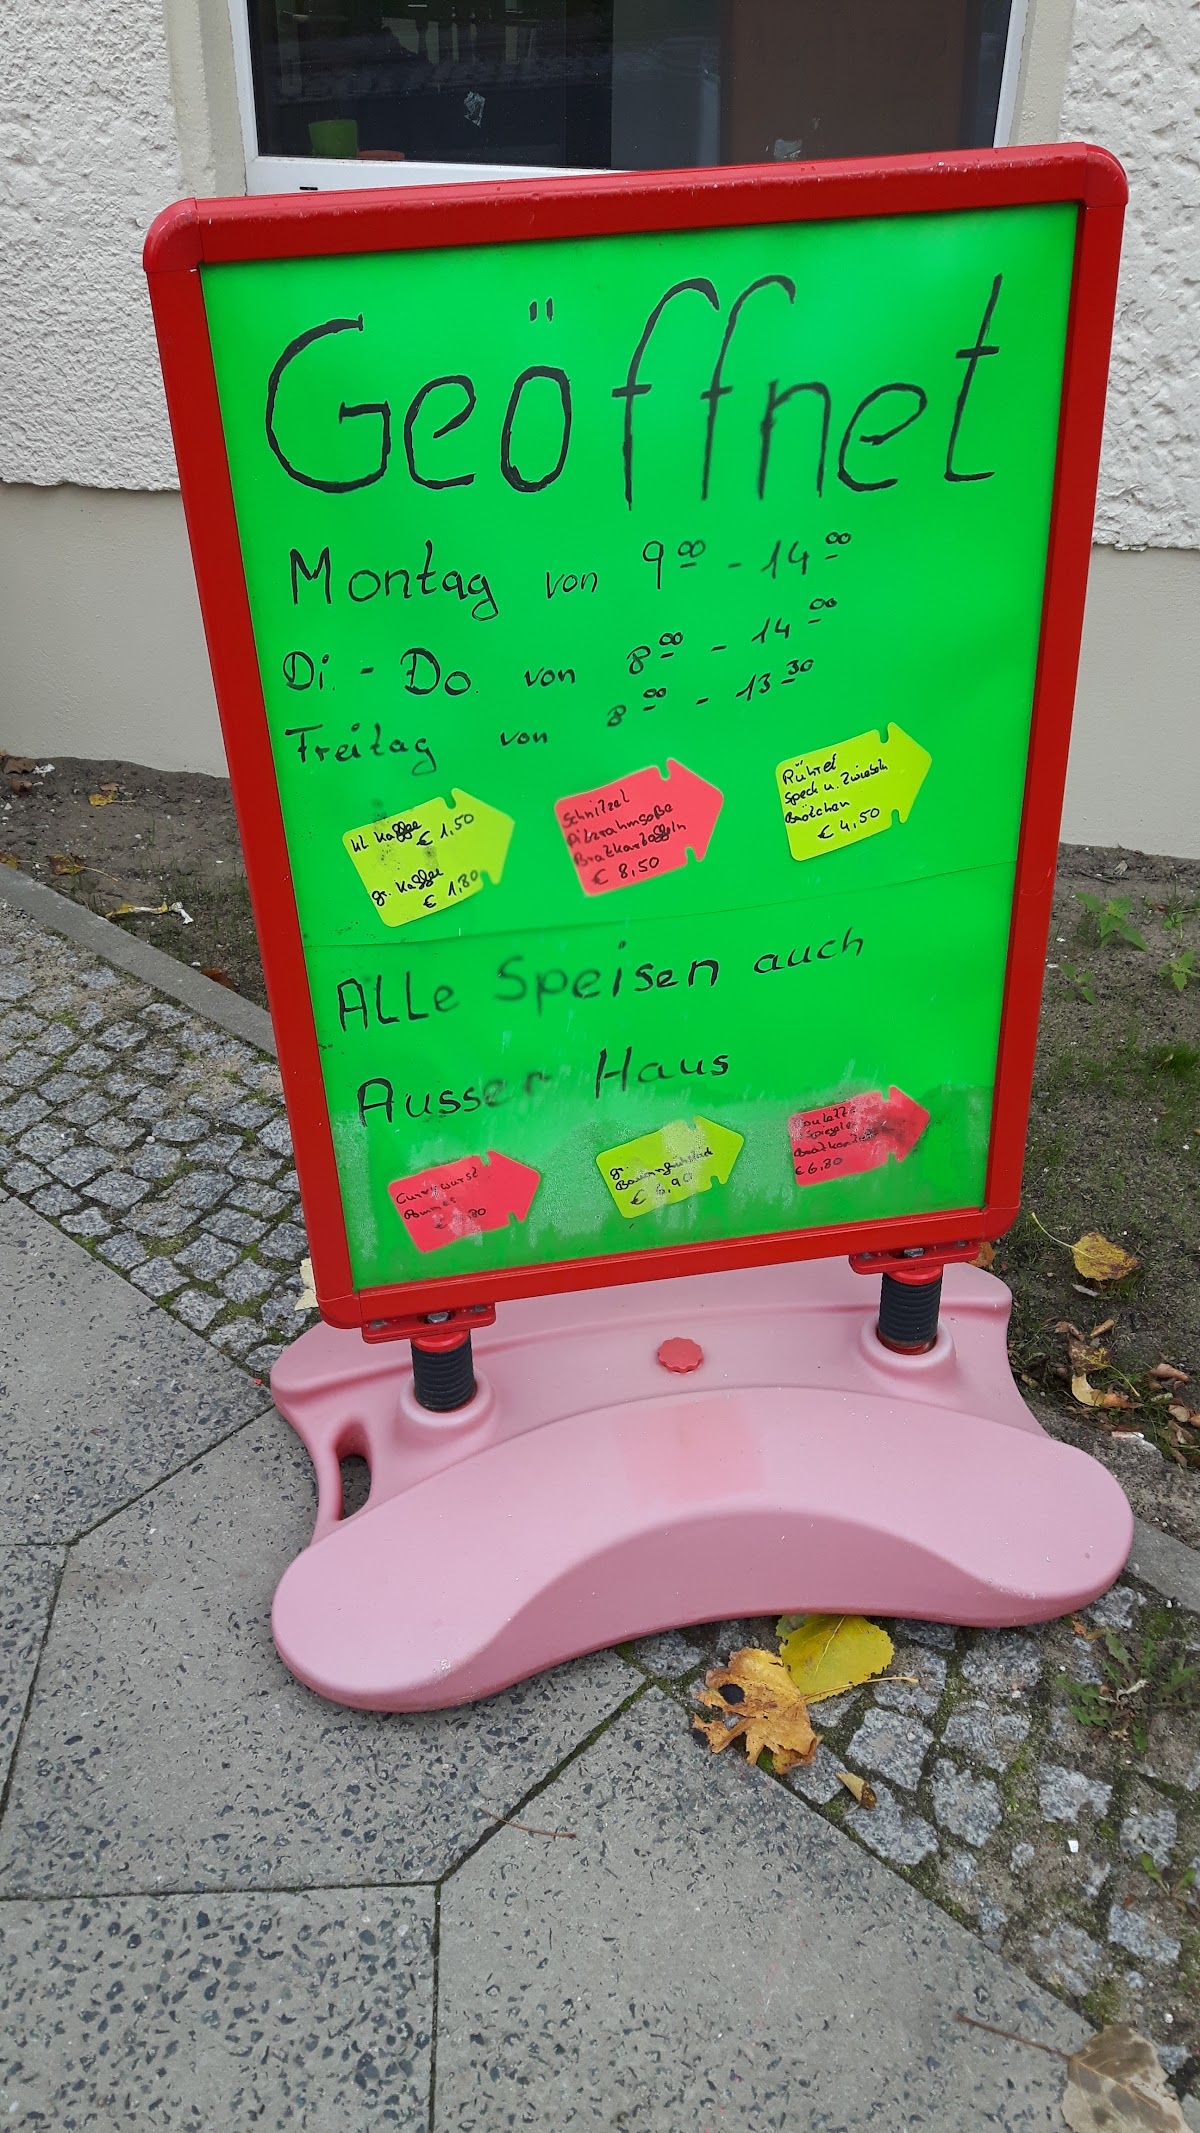 Geöffnet
Montag von 9 00 - 14 00
Di. - Do. von 8 00 - 14 00
Freitag von 8 00 - 13 30
kl. Kaffee
€ 1,50
gr. Kaffee
€ 1,80
Schnitzel
Pilzrahmsoße
Bratkartoffeln
€ 8,50
Rührei
Speck u. Zwiebeln
Brötchen
€ 4,50
ALLe Speisen auch
Ausser Haus
Currywurst
Pommes
gr.
Bauernfrühstück
Spiegelei
Bratkartoffeln
€ 6,80